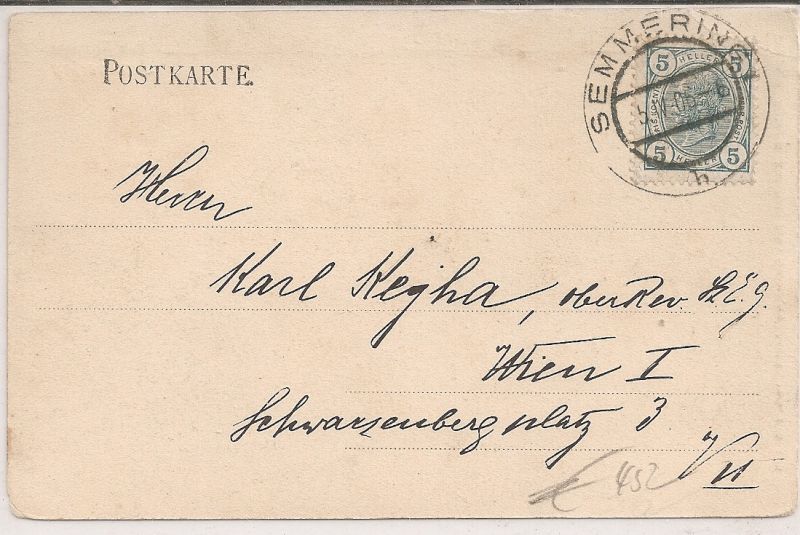 POSTKARTE.
SEMMERING
5 HELLER 5
5 HELLER 5
h
Herrn
Karl Kegha, oberRev.
Wien I
Schwarzenbergplatz 3
452